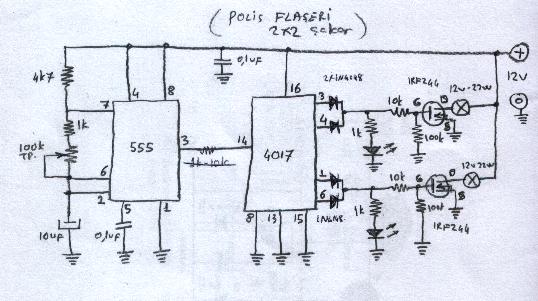 (POLİS FLAŞERİ
2x2 çakar)
4k7
0,1uF
+
12V
0
7
4
8
1k
100k
TP.
555
3
1k-10k
14
16
4017
3
4
2x1N4148
10k
G
IRF244
D
S
12V-22W
1k
100k
6
2
5
1
10uF
0,1uF
8
13
15
1
6
1N4148
10k
G
D
S
12V 22W
1k
100k
IRF244